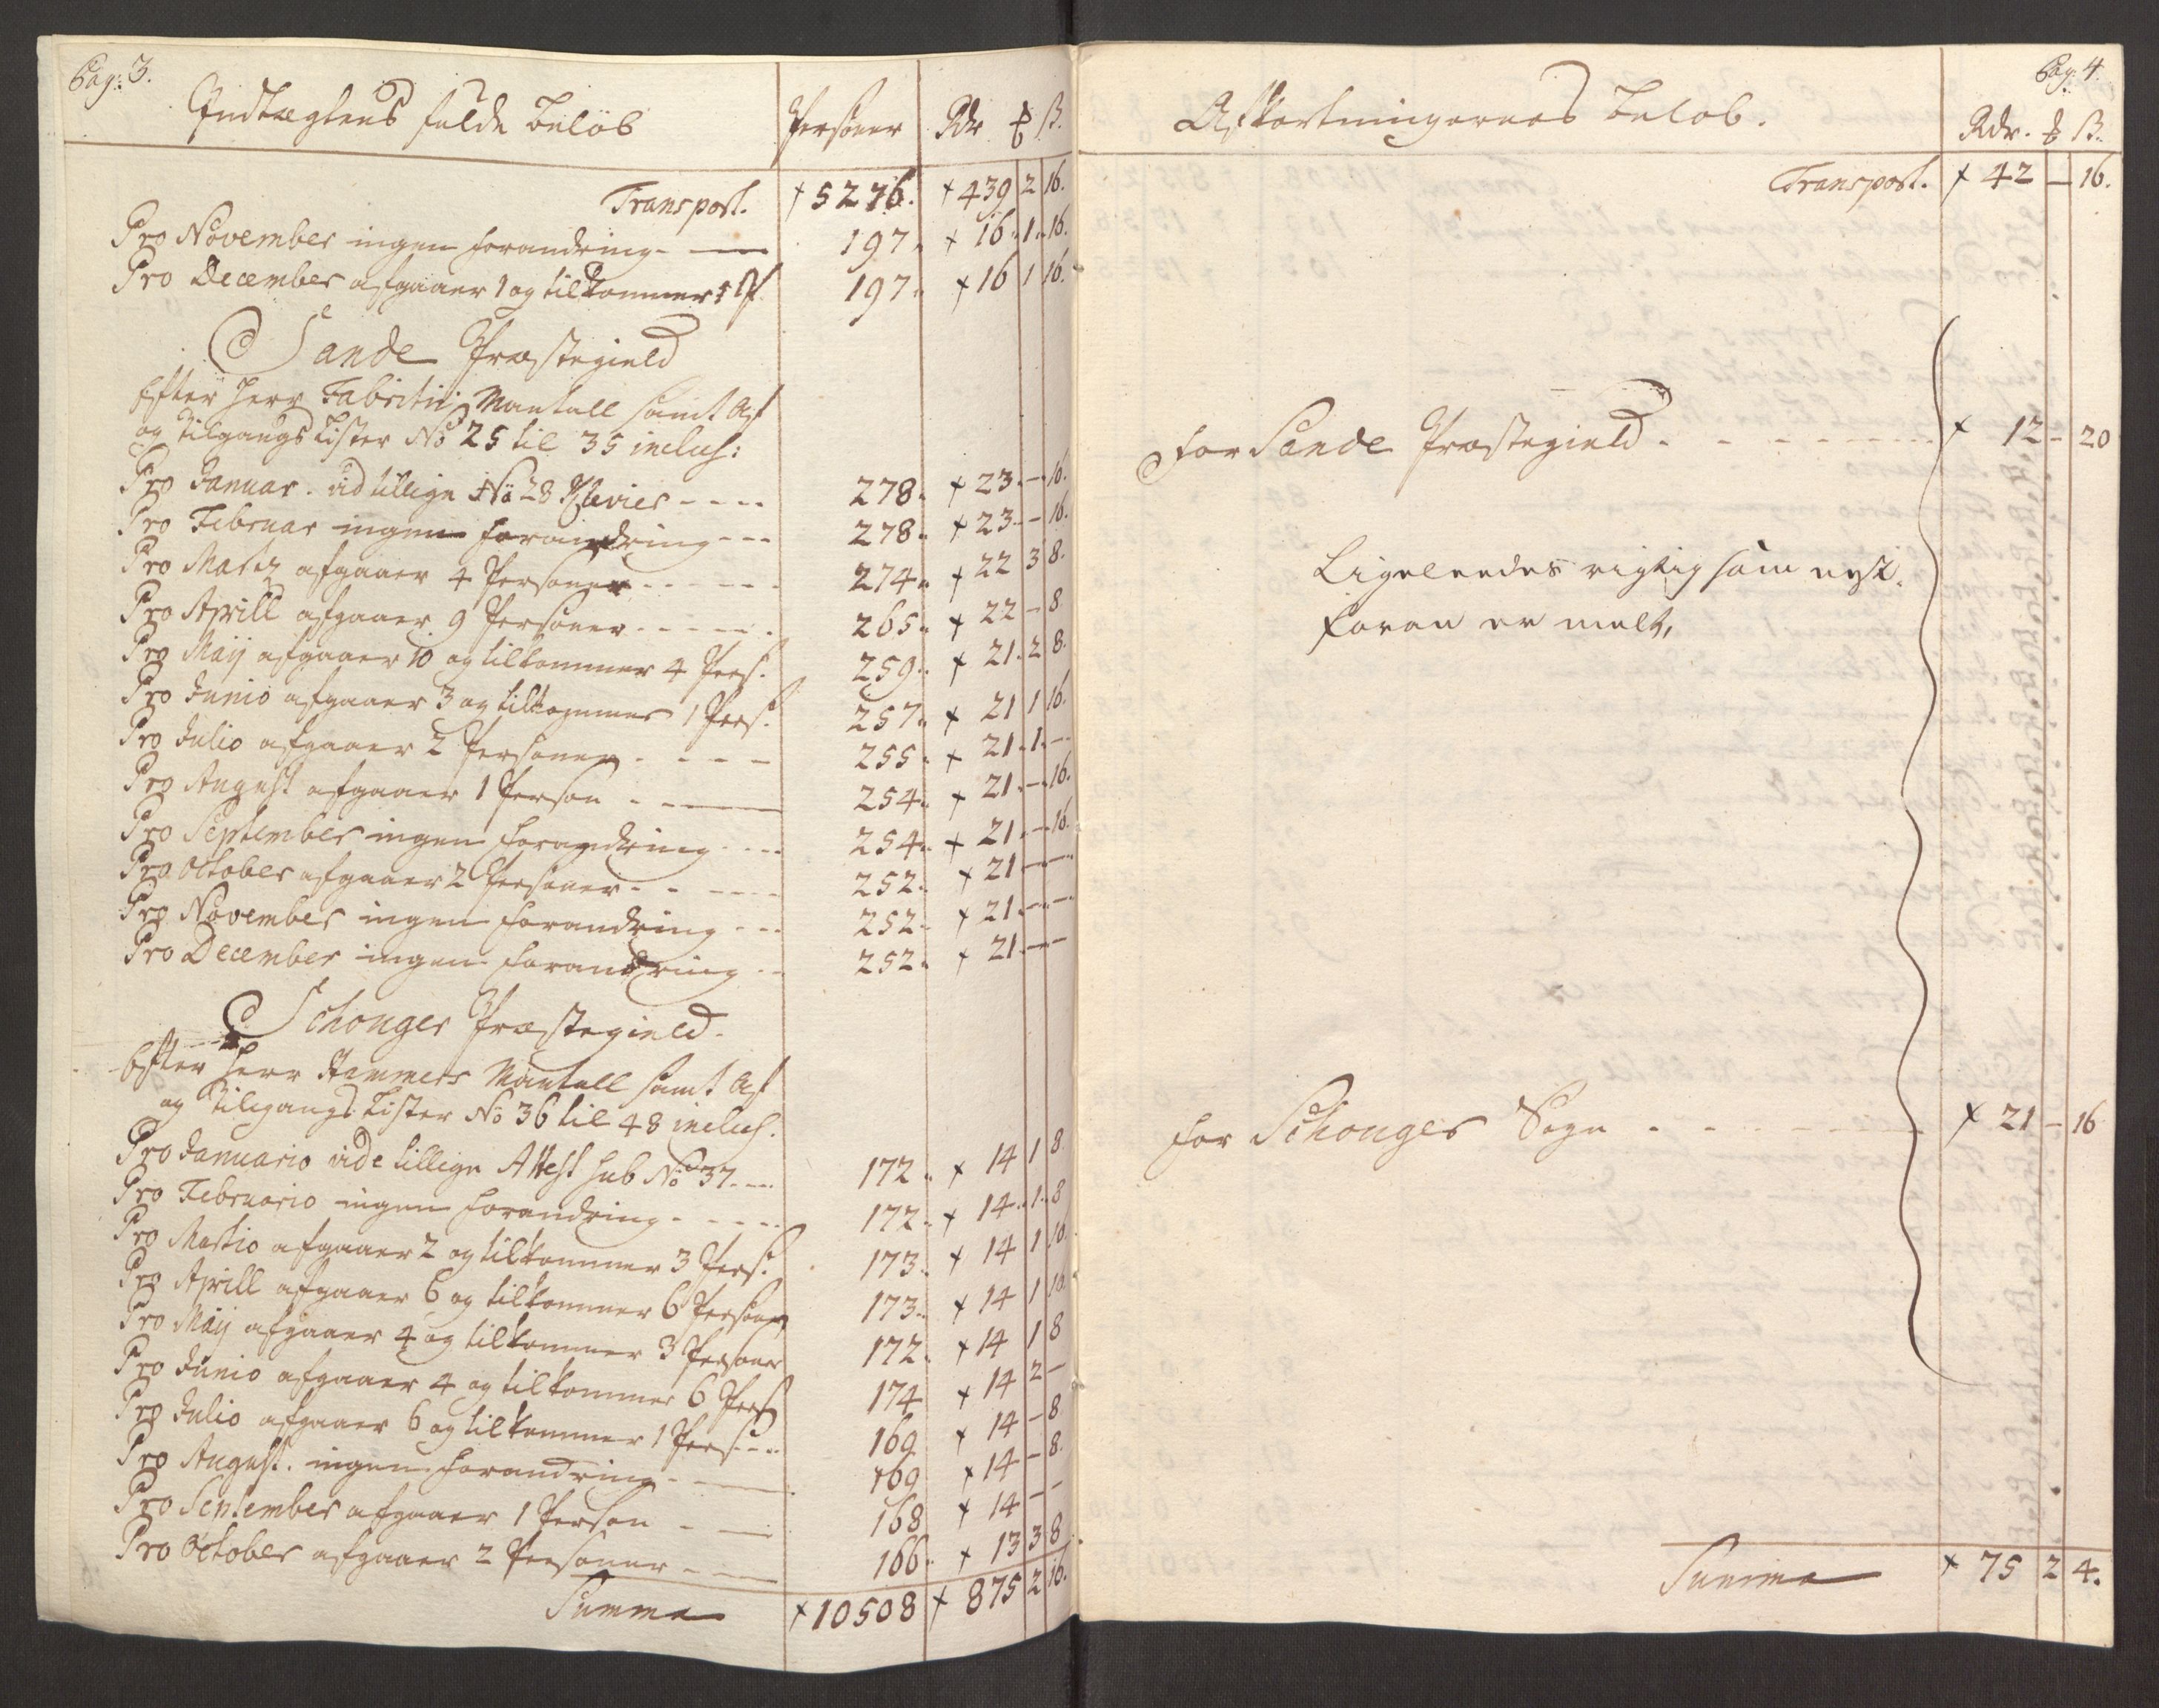 Pag: 3.
Indtægtens fulde beløb Personer Rdr ₰ ß.
Transport. + 5276. + 439 2 16.
Pro November ingen forandring 197 + 16. 1. 16.
Pro December afgaaer 1 og tilkommer 1 P. 197 + 16 1 16.
Sande Præstegield
Efter Herr Fabritii Mantall samt Af
og tilgangs Lister No 25 til 35 inclus:
Pro Januar. vid tillige No 28 278 + 23. - 16.
Pro Februar ingen forandring 278 + 23 - 16.
Pro Martz afgaaer 4 Personer 274 + 22 3 8.
Pro Aprill afgaaer 9 Personer 265 + 22 - 8
Pro Maij afgaaer 10 og tilkommer 4 Pers. 259 + 21. 2 8.
Pro Junio afgaaer 3 og tilkommer 1 Pers. 257 + 21 1 16.
Pro Julio afgaaer 2 Personer 255 + 21. 1. -
Pro August afgaaer 1 Person 254 + 21. - 16.
Pro September ingen forandring 254 + 21. - 16.
Pro October afgaaer 2 Personer 252 + 21 - -
Pro November ingen forandring 252 + 21 - -
Pro December ingen forandring 252 + 21 - -
Schouger Præstegield.
Efter Herr Hammers Mantall samt Af
og tilgangs Lister No 36 til 48 inclus.
Pro Januario vide tillige Attest sub No 37. 172 + 14 1 8
Pro Februario ingen forandring 172 + 14. 1. 8
Pro Martio afgaaer 2 og tilkommer 3 Pers. 173 + 14 1 10.
Pro Aprill afgaaer 6 og tilkommer 6 Personer 173 + 14 1 10
Pro Maij afgaaer 4 og tilkommer 3 Personer 172 + 14 1 8
Pro Junio afgaaer 4 og tilkommer 6 Pers 174 + 14 2 -
Pro Julio afgaaer 6 og tilkommer 1 Pers. 169 + 14 - 8
Pro August. ingen forandring 169 + 14 - 8.
Pro September afgaaer 1 Person 168 + 14 - -
Pro October afgaaer 2 Personer 166 + 13 3 8
Summa + 10508 + 875 2 16.
Pag: 4.
Afkortningernes beløb. Rdr. ₰ ß.
Transport. + 42 - 16.
for Sande Præstegield + 12 - 20
Ligeleedes rigtig som nest
foran er melt,
for Schouger Sogn + 21 - 16
Summa + 75 2 4.